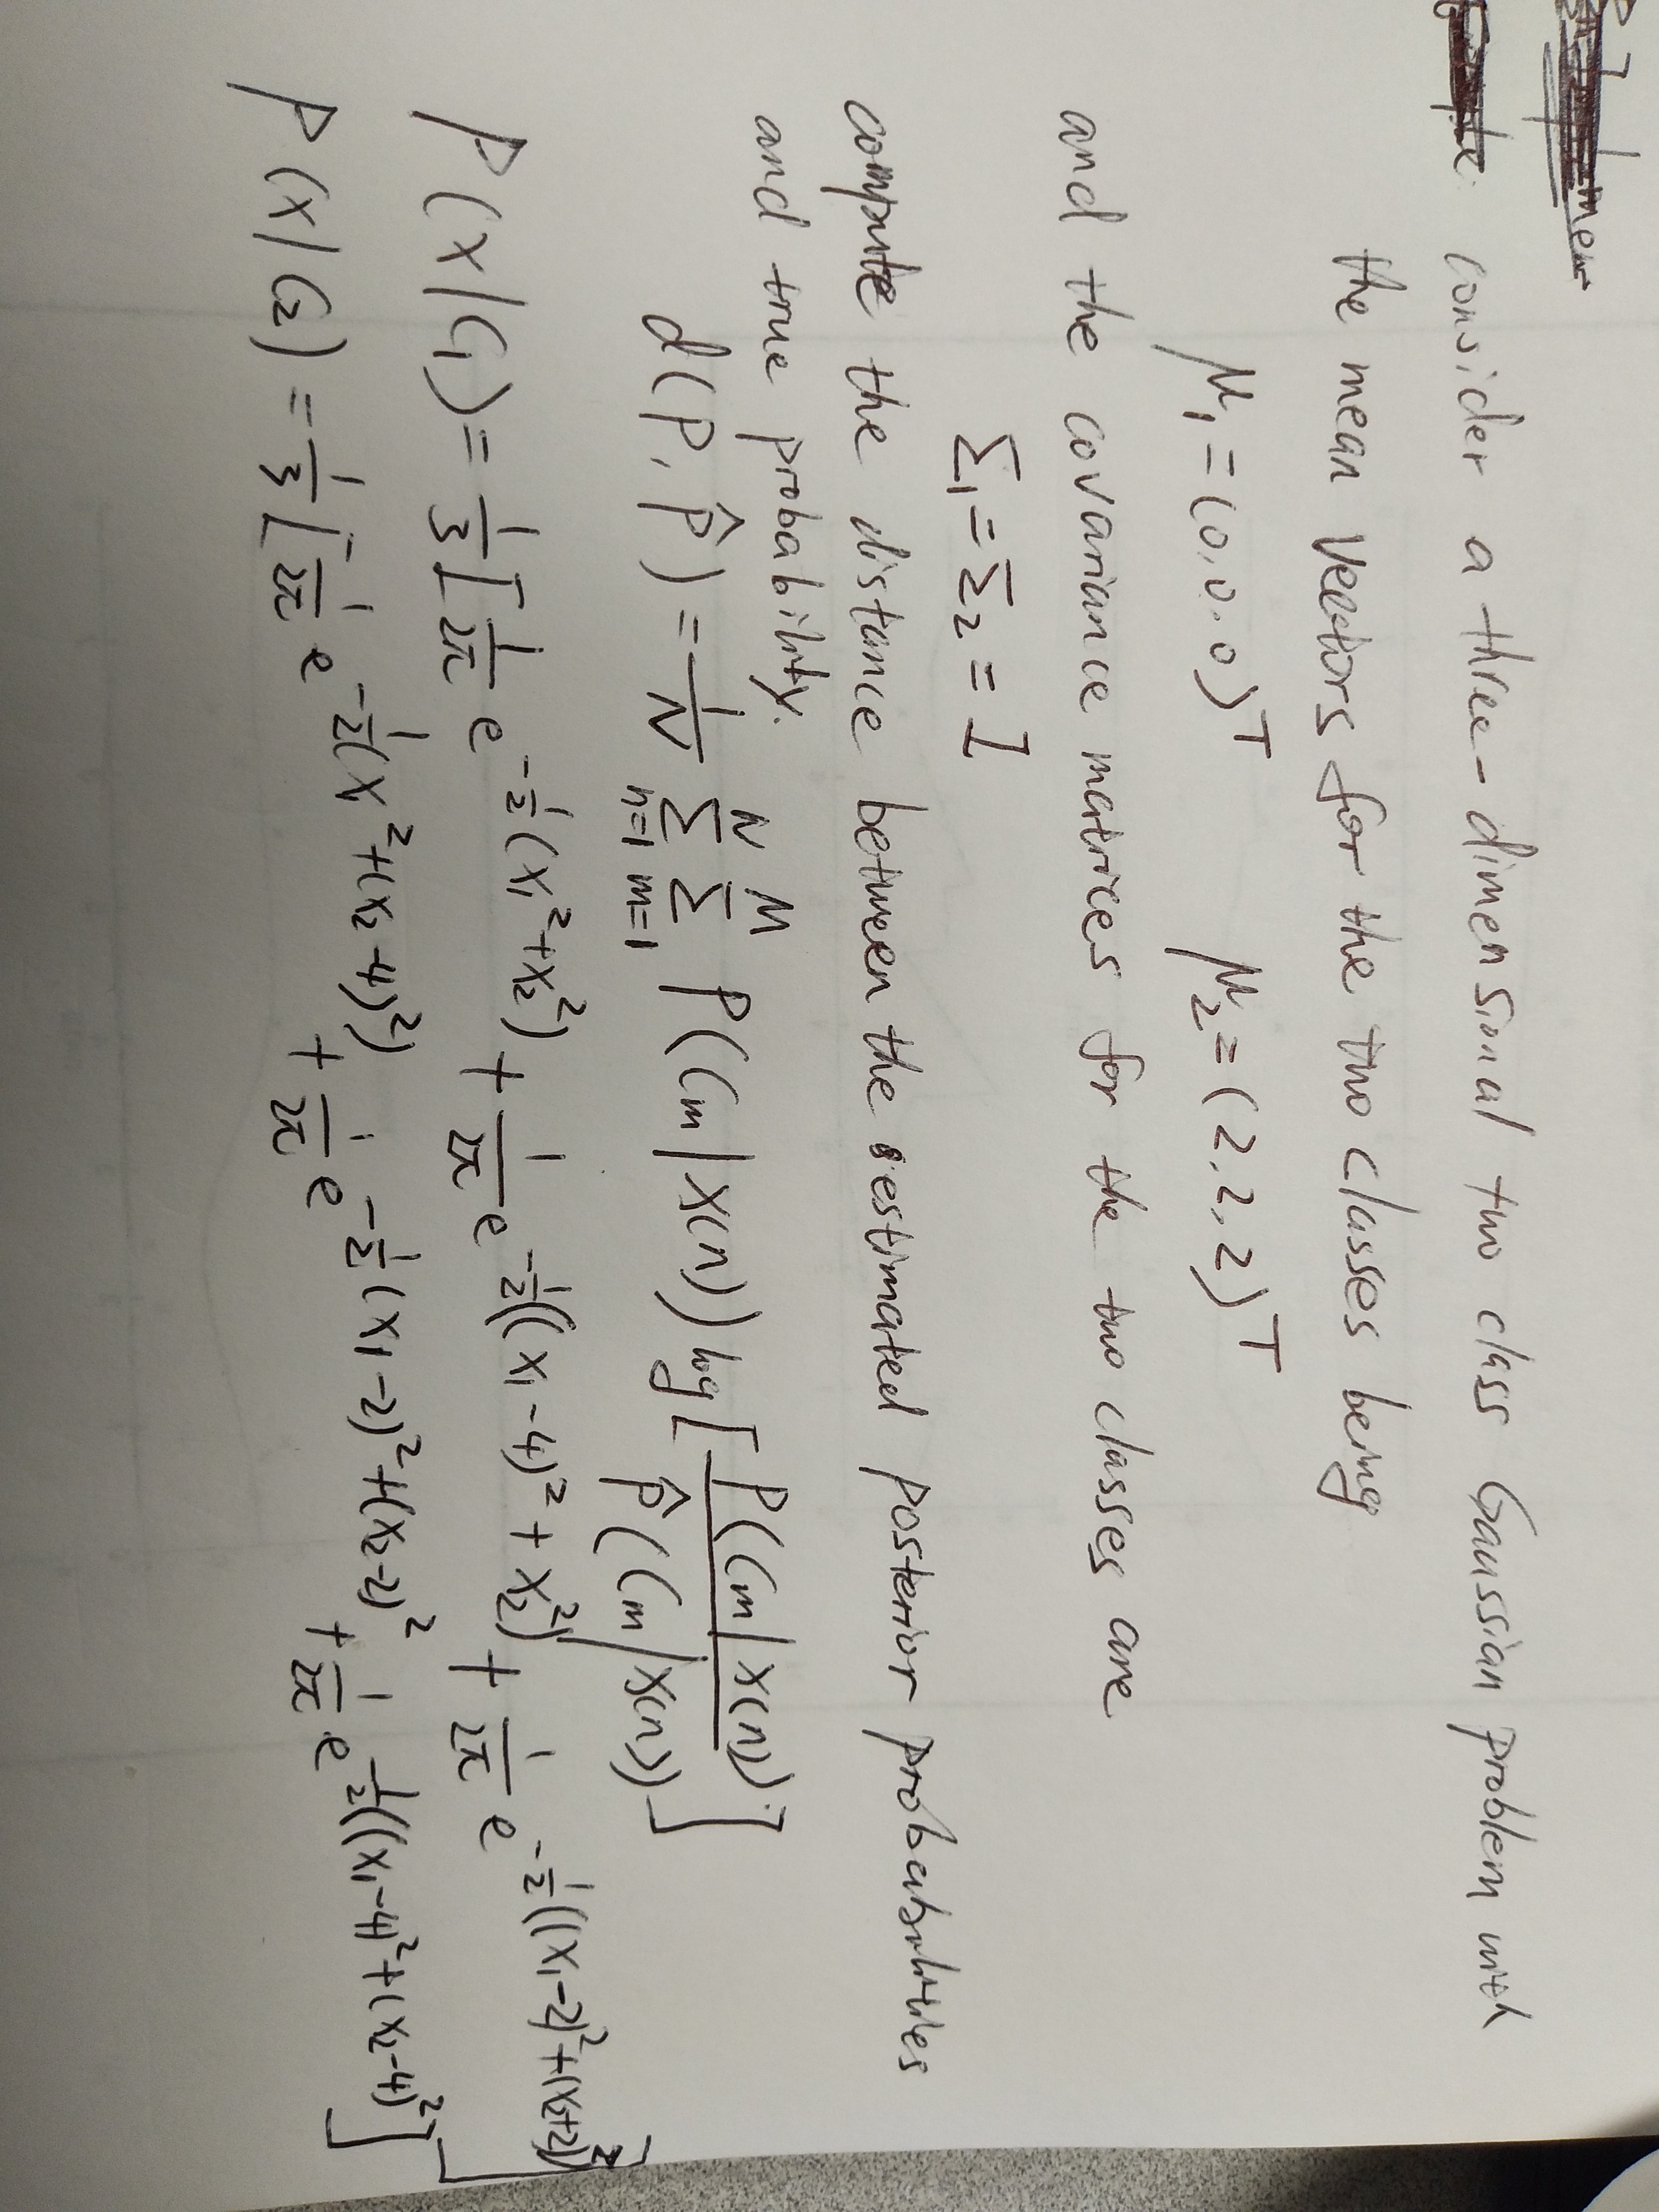 consider a three-dimensional two class Gaussian problem with
the mean vectors for the two classes being
μ₁=(0,0,0)ᵀ μ₂=(2,2,2)ᵀ
and the covariance matrices for the two classes are
Σ₁=Σ₂=I
compute the distance between the estimated posterior probabilities
and true probability.
d(p, p̂) = 1/N Σ_{n=1}^{N} Σ_{m=1}^{M} P(Cm|x(n)) log[P(Cm|x(n)) / p̂(Cm|x(n))]
P(x|C₁) = 1/3 [1/2π e^{-1/2(x₁²+x₂²)} + 1/2π e^{-1/2((x₁-4)²+x₂²)} + 1/2π e^{-1/2((x₁-2)²+(x₂+2)²}]
P(x|C₂) = 1/3 [1/2π e^{-1/2(x₁²+(x₂-4)²)} + 1/2π e^{-1/2(x₁-2)²+(x₂-2)²} + 1/2π e^{-1/2((x₁-4)²+(x₂-4)²}]